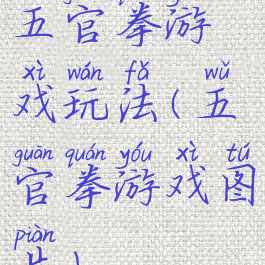 五官拳游
xì wán fǎ wǔ
戏玩法(五
guān quán yóu xì tú
官拳游戏图
piàn
片)